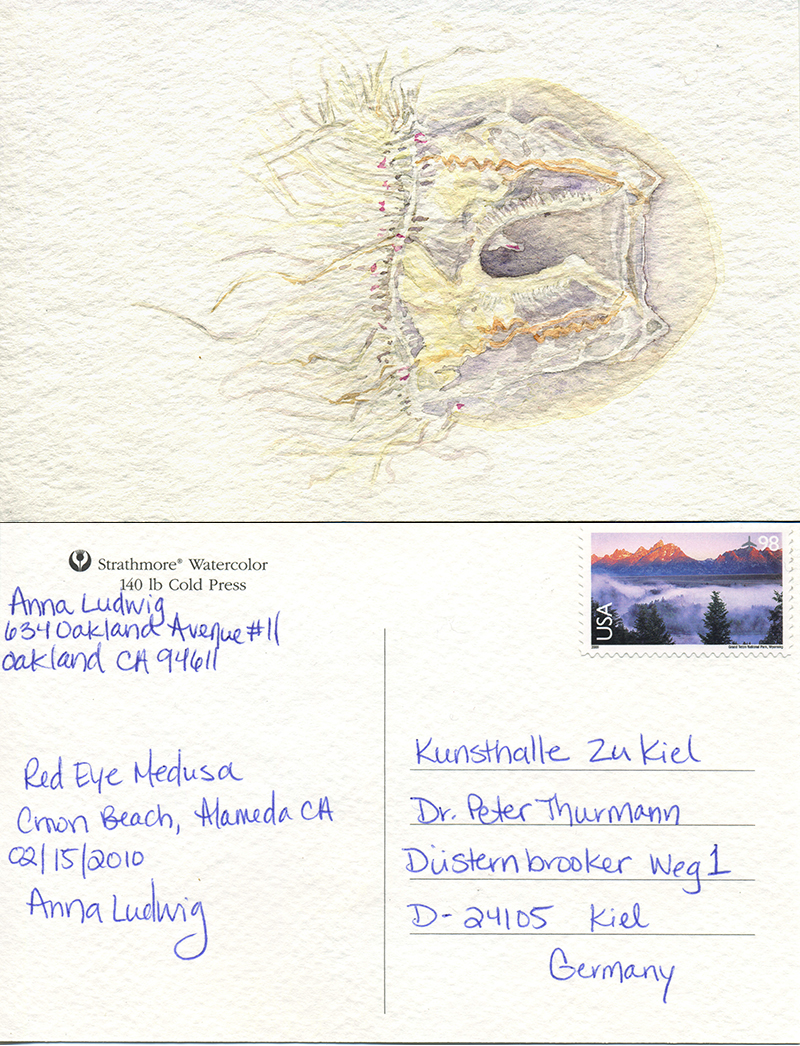 Strathmore® Watercolor
140 lb Cold Press
Anna Ludwig
634 Oakland Avenue #11
Oakland CA 94611
Red Eye Medusa
Crown Beach, Alameda CA
02/15/2010
Anna Ludwig
98
USA
2009
Grand Teton National Park, Wyoming
Kunsthalle Zu Kiel
Dr. Peter Thurmann
Düsternbrooker Weg 1
D-24105 Kiel
Germany